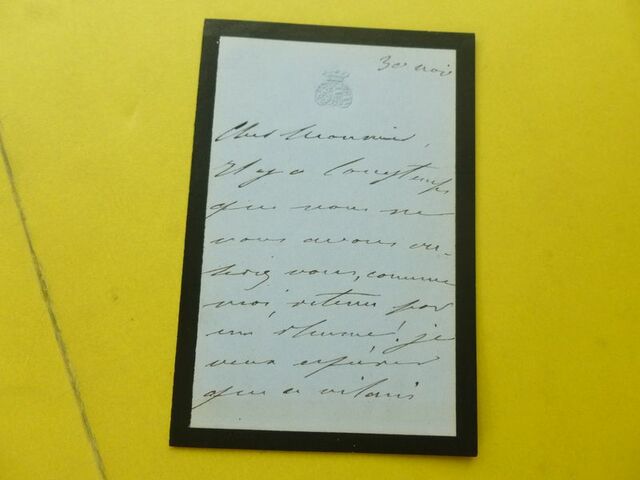 30 nov
Cher Monsieur,
Il y a longtemps
que nous ne
vous avons
vous, comme
moi, retenu par
un rhume! je
veux espérer
que ce vilain